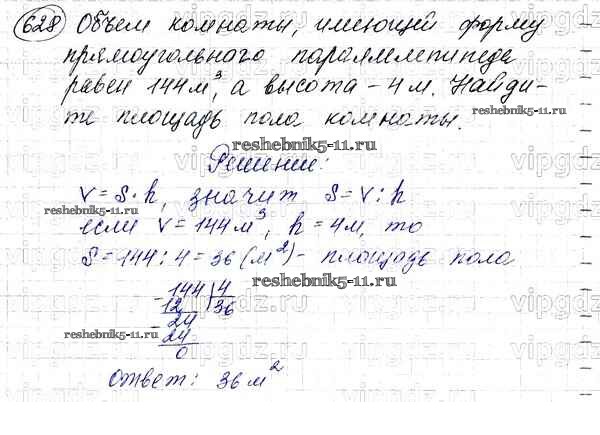 628 Объем комнаты, имеющей форму
прямоугольного параллелепипеда
равен 144 м³, а высота - 4 м. Найди-
те площадь пола комнаты.
reshebnik5-11.ru
reshebnik5-11.ru
Решение:
V = S · h, значит S = V : h
reshebnik5-11.ru
если V = 144 м³, h = 4 м, то
S = 144 : 4 = 36 (м²) - площадь пола
reshebnik5-11.ru
144 | 4
12 36
24
reshebnik5-11.ru
24
0
ответ: 36 м²